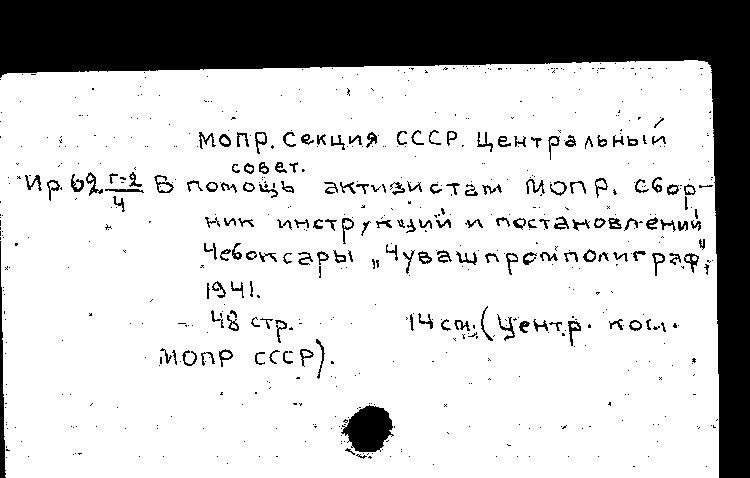 МОПР. Секция СССР. Центральный
совет.
Ир 62 г-2/4 В помощь активистам МОПР. Сбор-
ник инструкций и постановлений
Чебоксары „Чувашпромполиграф",
1941.
48 стр. 14 см. (Центр. ком.
МОПР СССР).